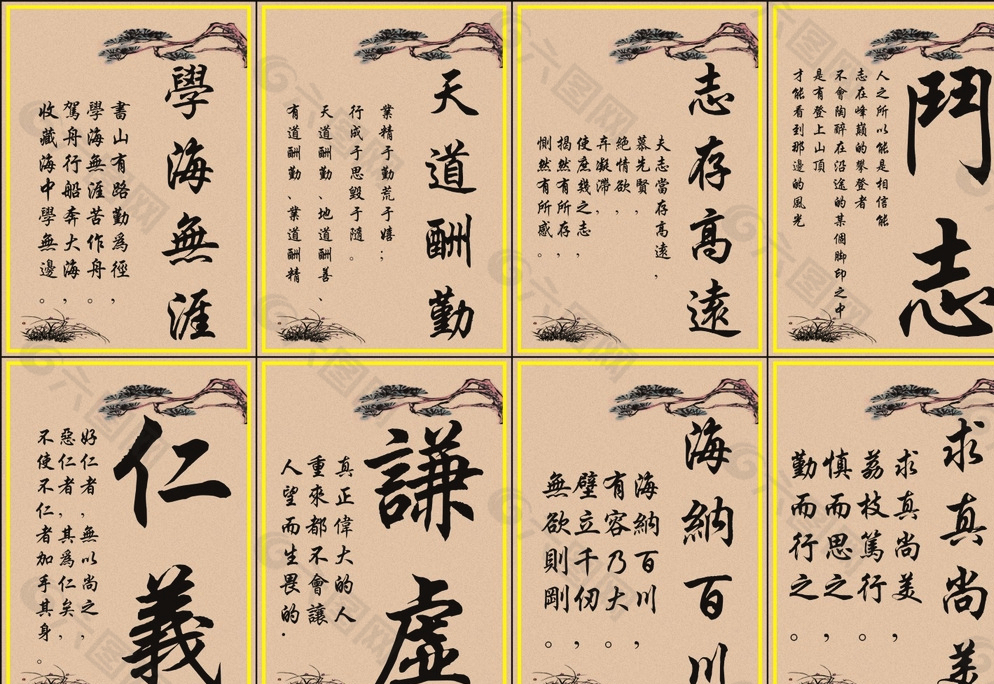 學海無涯
書山有路勤為徑，
學海無涯苦作舟。
駕舟行船奔大海，
收藏海中學無邊。
天道酬勤
業精于勤荒于嬉；
行成于思毀于隨。
天道酬勤、地道酬善、
有道酬勤、業道酬精
志存高遠
夫志當存高遠，
慕先賢，
絕情欲，
弃凝滯，
使庶幾之志，
揭然有所存，
惻然有所感。
鬥志
人之所以能是相信能
志在峰巔的攀登者
不會陶醉在沿途的某個脚印之中
是有登上山頂
才能看到那邊的風光
仁義
好仁者，無以尚之，
惡仁者，其為仁矣，
不使不仁者加手其身。
謙虛
真正偉大的人
重來都不會讓
人望而生畏的.
海納百川
海納百川，
有容乃大。
壁立千仞，
無欲則剛。
求真尚美
求真尚美，
荔枝篤行。
慎而思之，
勤而行之。
六图网